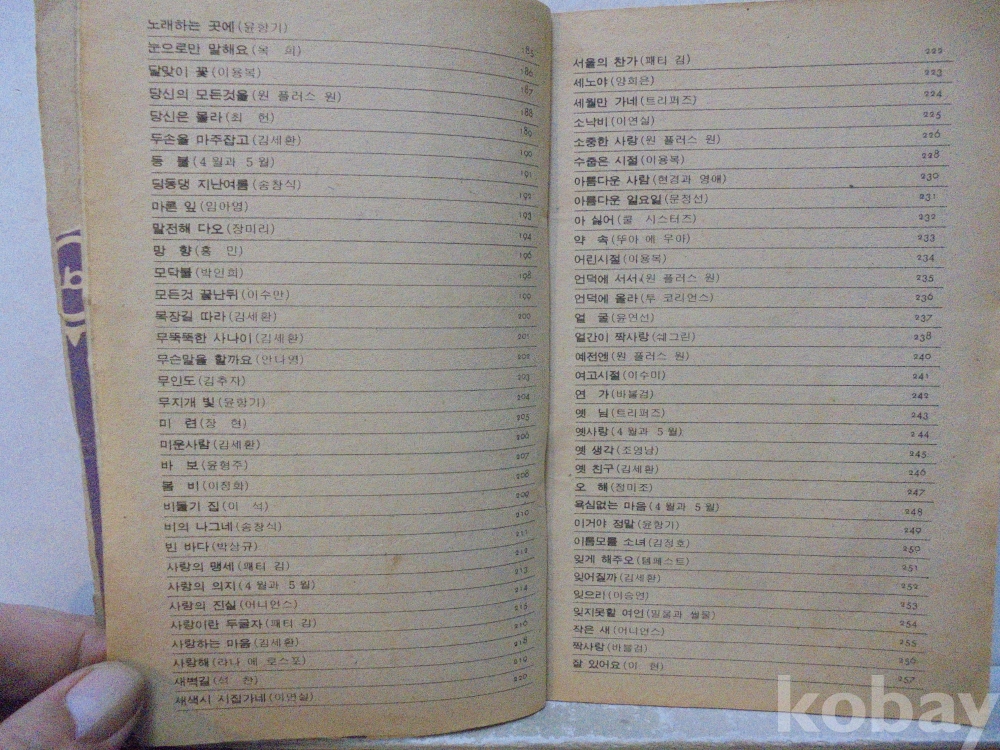 노래하는 곳에(윤항기) 185
눈으로만 말해요(옥 희) 186
달맞이 꽃(이용복) 187
당신의 모든것을(원 플러스 원) 188
당신은 몰라(최 헌) 189
두손을 마주잡고(김세환) 190
등 불(4월과 5월) 191
딩동댕 지난여름(송창식) 192
마른 잎(임아영) 193
말전해 다오(장미리) 194
망 향(홍 민) 196
모닥불(박인희) 198
모든것 끝난뒤(이수만) 199
목장길 따라(김세환) 200
무뚝뚝한 사나이(김세환) 201
무슨말을 할까요(안나영) 202
무인도(김추자) 203
무지개 빛(윤항기) 204
미 련(장 현) 205
미운사람(김세환) 206
바 보(윤형주) 207
봄 비(이정화) 208
비둘기 집(이 석) 209
비의 나그네(송창식) 210
빈 바다(박상규) 211
사랑의 맹세(패티 김) 212
사랑의 의지(4월과 5월) 213
사랑의 진실(어니언스) 214
사랑이란 두글자(패티 김) 215
사랑하는 마음(김세환) 216
사랑해(라나 에 로스포) 218
새벽길(석 찬) 219
새색시 시집가네(이연실) 220
서울의 찬가(패티 김) 222
세노야(양희은) 223
세월만 가네(트리퍼즈) 224
소낙비(이연실) 225
소중한 사랑(원 플러스 원) 226
수줍은 시절(이용복) 228
아름다운 사람(현경과 영애) 230
아름다운 일요일(문정선) 231
아 싫어(쿨 시스터즈) 232
약 속(뚜아 에 무아) 233
어린시절(이용복) 234
언덕에 서서(원 플러스 원) 235
언덕에 올라(투 코리언스) 236
얼 굴(윤연선) 237
얼간이 짝사랑(쉐그린) 238
예전엔(원 플러스 원) 240
여고시절(이수미) 241
연 가(바블껌) 242
옛 님(트리퍼즈) 243
옛사랑(4월과 5월) 244
옛 생각(조영남) 245
옛 친구(김세환) 246
오 해(정미조) 247
욕심없는 마음(4월과 5월) 248
이거야 정말(윤항기) 249
이름모를 소녀(김정호) 250
잊게 해주오(템페스트) 251
잊어질까(김세환) 252
잊으리(이승연) 253
잊지못할 여인(밀물과 썰물) 254
작은 새(어니언스) 255
짝사랑(바블껌) 256
잘 있어요(이 현) 257
kobay